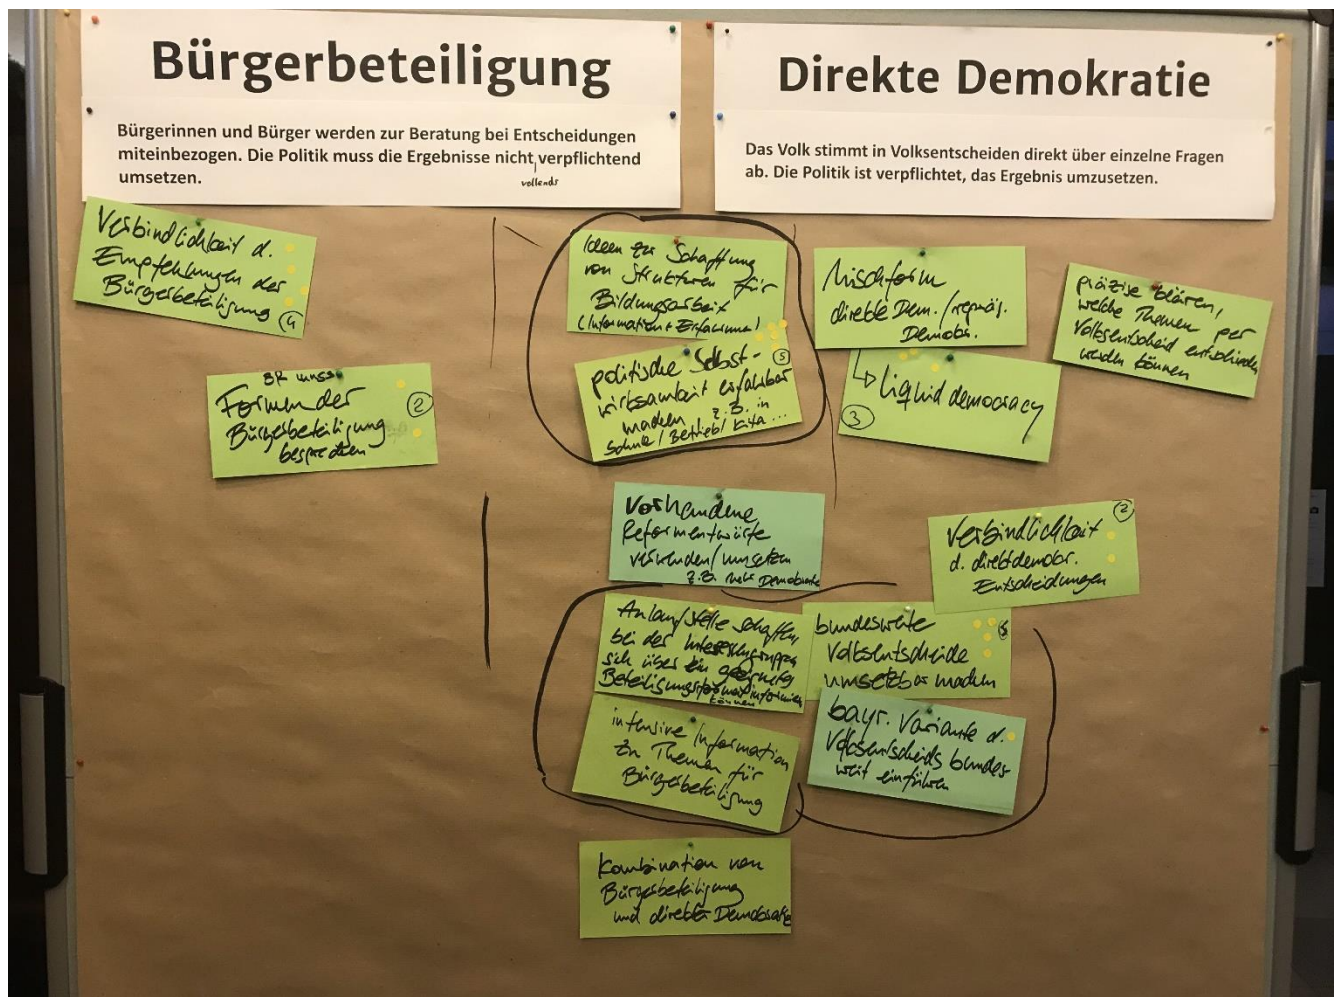 Bürgerbeteiligung
Bürgerinnen und Bürger werden zur Beratung bei Entscheidungen
miteinbezogen. Die Politik muss die Ergebnisse nicht verpflichtend
vollends
umsetzen.
Direkte Demokratie
Das Volk stimmt in Volksentscheiden direkt über einzelne Fragen
ab. Die Politik ist verpflichtet, das Ergebnis umzusetzen.
Verbindlichkeit d.
Empfehlungen der
Bürgerbeteiligung
4
BR muss
Formen der
Bürgerbeteiligung
besprechen
2
Ideen zur Schaffung
von Strukturen für
Bildungsarbeit
(Information + Erfahrung)
politische Selbst-
wirksamkeit erfahrbar
machen z.B. in
Schule / Betrieb / Kita ...
5
Mischform
direkte Dem. / repräs.
Demokr.
liquid democracy
3
präzise klären,
welche Themen per
Volksentscheid entschieden
werden können
Vorhandene
Reformentwürfe
verwenden / umsetzen
z.B. mehr Demokratie
Verbindlichkeit
d. direktdemokr.
Entscheidungen
2
Anlaufstelle schaffen,
bei der Interessengruppen
sich über ein geeignetes
Beteiligungsformat informieren
können
bundesweite
Volksentscheide
umsetzbar machen
5
intensive Information
zu Themen für
Bürgerbeteiligung
bayr. Variante d.
Volksentscheids bundes-
weit einführen
Kombination von
Bürgerbeteiligung
und direkter Demokratie